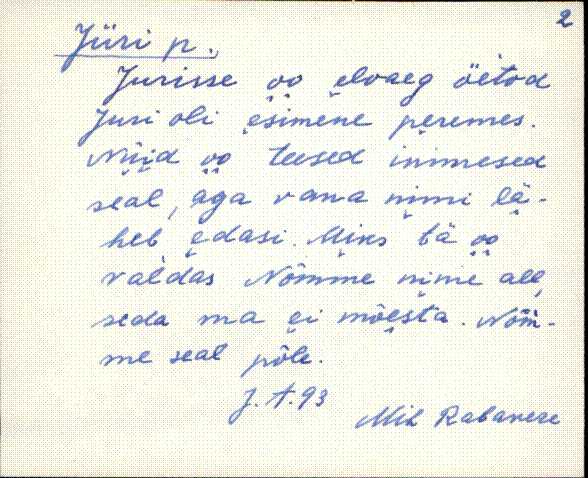 2
Jüri p.
Jurisse oo elvaeg öetod
Juri oli esimene peremes.
Nüid oo teesed inimesed
seal, aga vana nimi lä-
heb edasi. Miks tä oo
valdas Nõmme nime all,
seda ma ei mõesta. Nõm-
me seal põle.
J. A. 93
Mih Rabavere